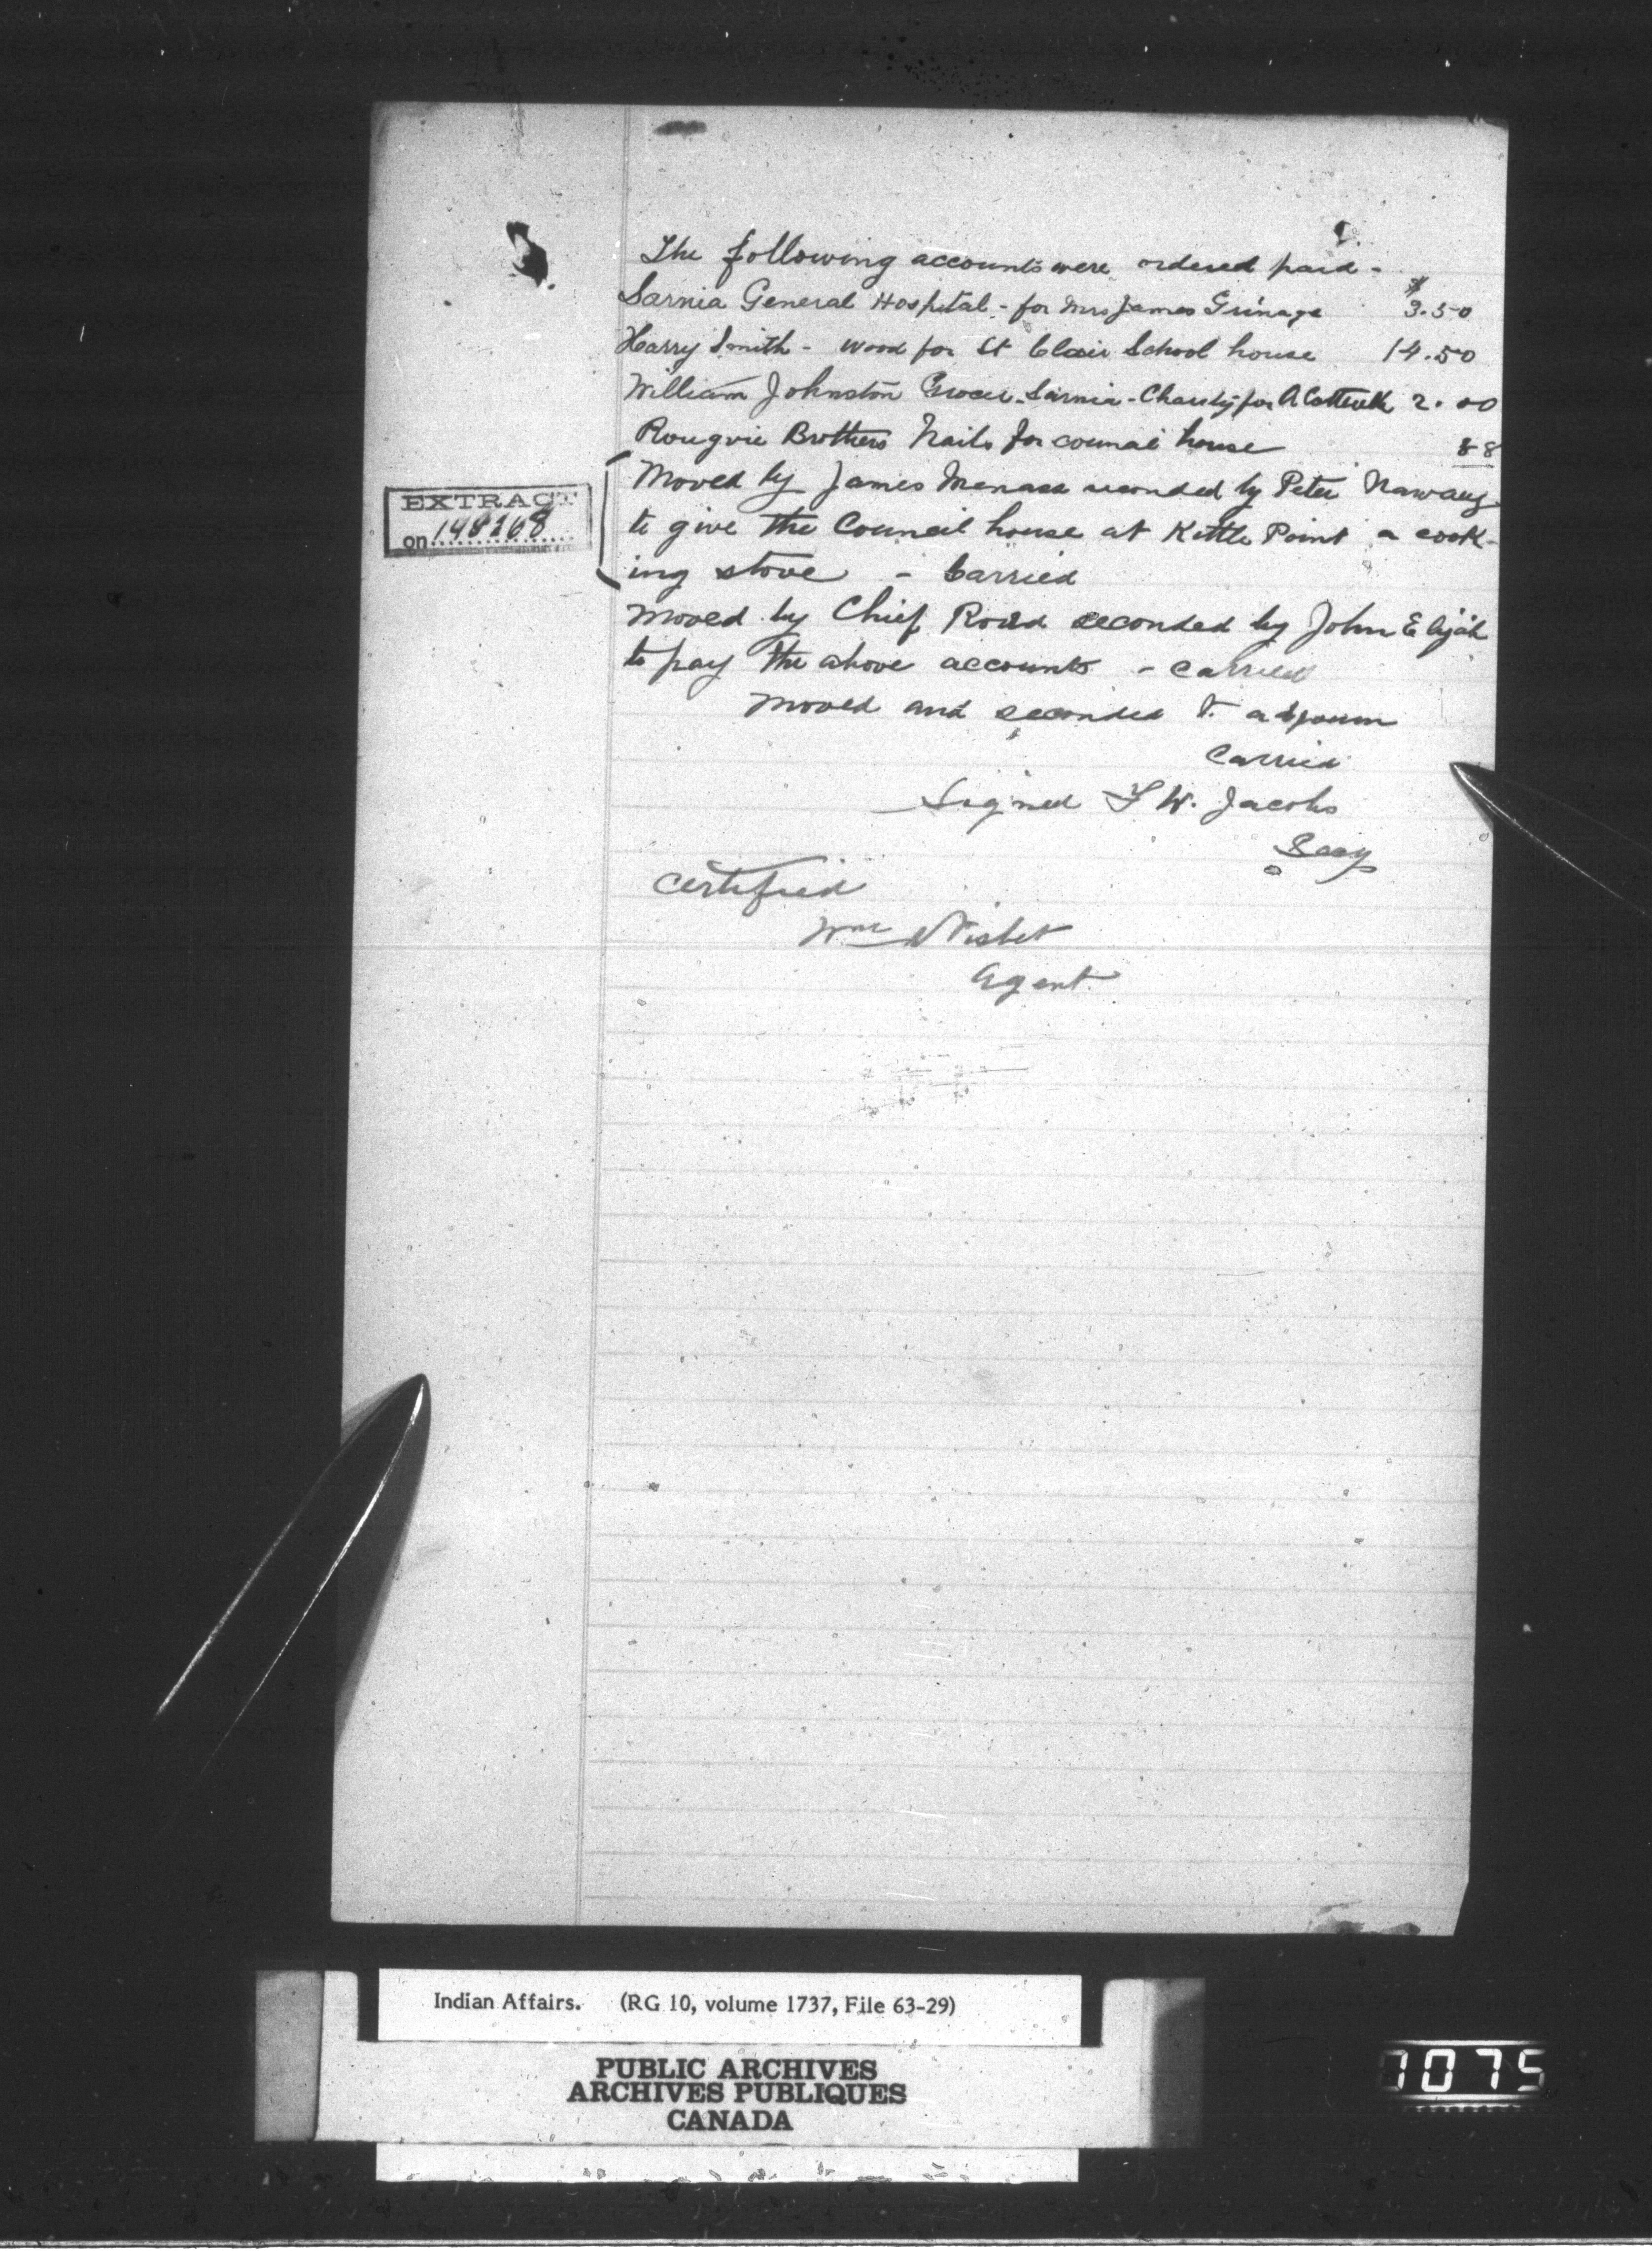 The following accounts were ordered paid -
$
Sarnia General Hospital - for Mrs James Grinage 3.50
Harry Smith - wood for St Clair School house 14.50
William Johnston Grocer - Sarnia - Charity for A 2.00
Rougvie Brothers Nails for council house 88
Moved by James Menass seconded by Peter Nawaug
to give the Council house at Kettle Point a cook-
ing stove - Carried
EXTRACT
on 148268
Moved by Chief seconded by John Elijah
to pay the above accounts - Carried
Moved and seconded to adjourn
Carried
Signed F W. Jacobs
Secy
Certified
Wm Nisbet
Agent
Indian Affairs. (RG 10, volume 1737, File 63-29)
PUBLIC ARCHIVES
ARCHIVES PUBLIQUES
CANADA
7075